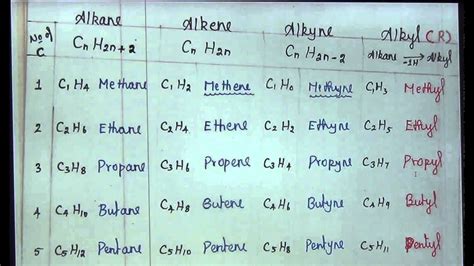 No of C. Alkane Alkene Alkyne Alkyl (R)
CnH2n+2 CnH2n CnH2n-2 Alkane -1H→ Alkyl
1 C1H4 Methane C1H2 Methene C1H0 Methyne CH3 Methyl
2 C2H6 Ethane C2H4 Ethene C2H2 Ethyne C2H5 Ethyl
3 C3H8 Propane C3H6 Propene C3H4 Propyne C3H7 Propyl
4 C4H10 Butane C4H8 Butene C4H6 Butyne C4H9 Butyl
5 C5H12 Pentane C5H10 Pentene C5H8 Pentyne C5H11 Pentyl